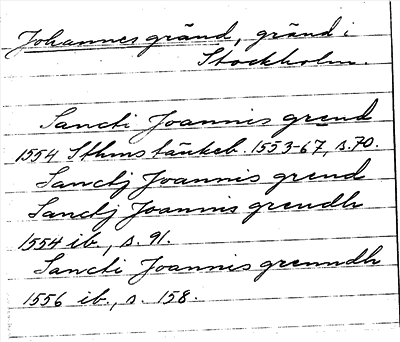 Johannes gränd, gränd i
Stockholm.
Sancti Joannis grend
1554 Sthms tänkeb. 1553-67, s. 70.
Sanctj Joannis grend
Sanctj Joannis grendh
1554 ib., s. 91.
Sancti Joannis grenndh
1556 ib., s. 158.